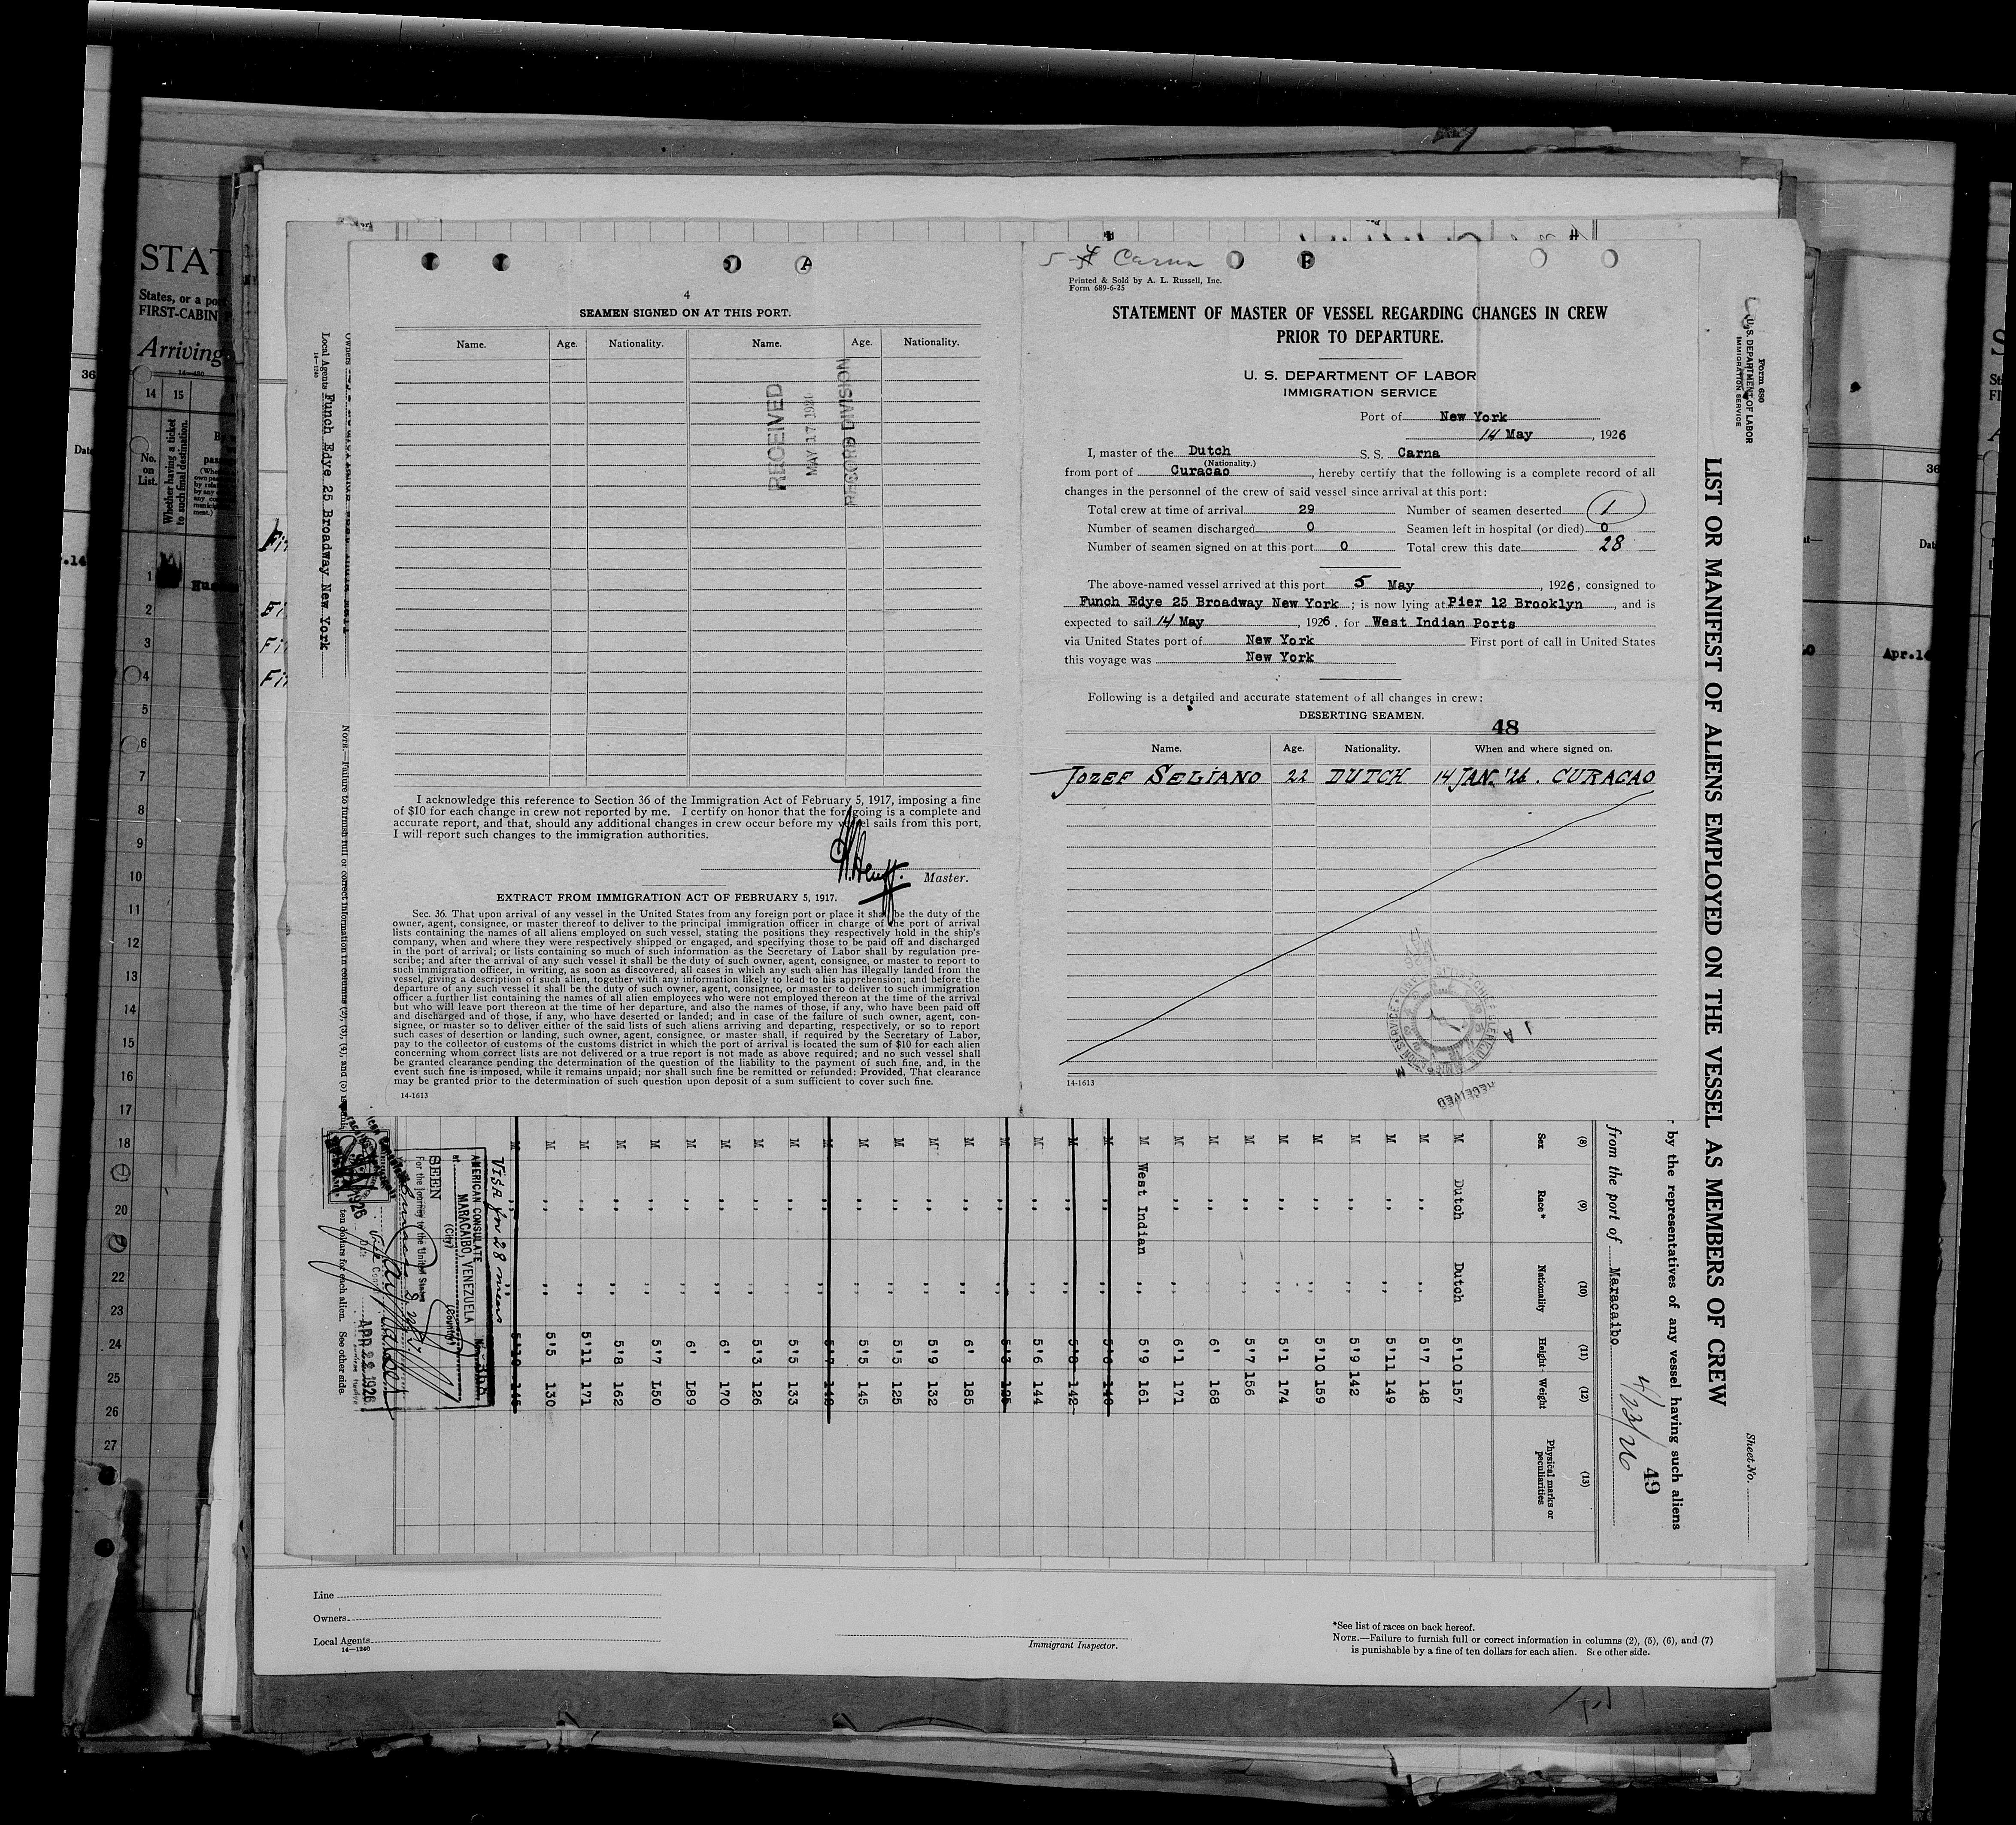 4
SEAMEN SIGNED ON AT THIS PORT.
Name. Age. Nationality. Name. Age. Nationality.
RECEIVED
MAY 17 1926
RECORD DIVISION
I acknowledge this reference to Section 36 of the Immigration Act of February 5, 1917, imposing a fine
of $10 for each change in crew not reported by me. I certify on honor that the foregoing is a complete and
accurate report, and that, should any additional changes in crew occur before my vessel sails from this port,
I will report such changes to the immigration authorities.
Master.
EXTRACT FROM IMMIGRATION ACT OF FEBRUARY 5, 1917.
Sec. 36. That upon arrival of any vessel in the United States from any foreign port or place it shall be the duty of the
owner, agent, consignee, or master thereof to deliver to the principal immigration officer in charge of the port of arrival
lists containing the names of all aliens employed on such vessel, stating the positions they respectively hold in the ship's
company, when and where they were respectively shipped or engaged, and specifying those to be paid off and discharged
in the port of arrival; or lists containing so much of such information as the Secretary of Labor shall by regulation pre-
scribe; and after the arrival of any such vessel it shall be the duty of such owner, agent, consignee, or master to report to
such immigration officer, in writing, as soon as discovered, all cases in which any such alien has illegally landed from the
vessel, giving a description of such alien, together with any information likely to lead to his apprehension; and before the
departure of any such vessel it shall be the duty of such owner, agent, consignee, or master to deliver to such immigration
officer a further list containing the names of all alien employees who were not employed thereon at the time of the arrival
but who will leave port thereon at the time of her departure, and also the names of those, if any, who have been paid off
and discharged and of those, if any, who have deserted or landed; and in case of the failure of such owner, agent, con-
signee, or master so to deliver either of the said lists of such aliens arriving and departing, respectively, or so to report
such cases of desertion or landing, such owner, agent, consignee, or master shall, if required by the Secretary of Labor,
pay to the collector of customs of the customs district in which the port of arrival is located the sum of $10 for each alien
concerning whom correct lists are not delivered or a true report is not made as above required; and no such vessel shall
be granted clearance pending the determination of the question of the liability to the payment of such fine, and, in the
event such fine is imposed, while it remains unpaid; nor shall such fine be remitted or refunded: Provided, That clearance
may be granted prior to the determination of such question upon deposit of a sum sufficient to cover such fine.
14-1613
Carna
Printed & Sold by A. L. Russell, Inc.
Form 689-6-25
STATEMENT OF MASTER OF VESSEL REGARDING CHANGES IN CREW
PRIOR TO DEPARTURE.
U. S. DEPARTMENT OF LABOR
IMMIGRATION SERVICE
Port of New York
14 May, 1926
I, master of the Dutch S. S. Carna
(Nationality.)
from port of Curacao, hereby certify that the following is a complete record of all
changes in the personnel of the crew of said vessel since arrival at this port:
Total crew at time of arrival 29 Number of seamen deserted 1
Number of seamen discharged 0 Seamen left in hospital (or died) 0
Number of seamen signed on at this port 0 Total crew this date 28
The above-named vessel arrived at this port 5 May, 1926, consigned to
Funch Edye 25 Broadway New York; is now lying at Pier 12 Brooklyn, and is
expected to sail 14 May, 1926. for West Indian Ports
via United States port of New York First port of call in United States
this voyage was New York
Following is a detailed and accurate statement of all changes in crew:
DESERTING SEAMEN. 48
Name. Age. Nationality. When and where signed on.
JOZEF SELIANO 22 DUTCH 14 JAN. '26. CURACAO
RECEIVED
14-1613
Form 680
U. S. DEPARTMENT OF LABOR
IMMIGRATION SERVICE
Sheet No.
LIST OR MANIFEST OF ALIENS EMPLOYED ON THE VESSEL AS MEMBERS OF CREW
by the representatives of any vessel having such aliens
49
from the port of Maracaibo 4/23/26
(8) (9) (10) (11) (12) (13)
Sex Race* Nationality Height Weight Physical marks or peculiarities
M Dutch Dutch 5'10 157
M ,, ,, 5'7 148
M ,, ,, 5'11 149
M ,, ,, 5'9 142
M ,, ,, 5'10 159
M ,, ,, 5'1 174
M ,, ,, 5'7 156
M ,, ,, 6' 168
M ,, ,, 6'1 171
M West Indian ,, 5'9 161
M ,, ,, 5'6 140
M ,, ,, 5'8 142
M ,, ,, 5'6 144
M ,, ,, 5'3 195
M ,, ,, 6' 185
M ,, ,, 5'9 132
M ,, ,, 5'5 125
M ,, ,, 5'5 145
M ,, ,, 5'7 148
M ,, ,, 5'5 133
M ,, ,, 5'3 126
M ,, ,, 6' 170
M ,, ,, 6' L89
M ,, ,, 5'7 L50
M ,, ,, 5'8 162
M ,, ,, 5'11 171
M ,, ,, 5'5 130
M ,, ,, 5'10 145
Visa for 28 men
AMERICAN CONSULATE
at MARACAIBO, VENEZUELA
(City) (Country)
SEEN
For the journey to the United States
APR 22 1926
Local Agents Funch Edye 25 Broadway New York
14—1240
NOTE.—Failure to furnish full or correct information in columns (2), (3), (4), and (5) is
ten dollars for each alien. See other side.
STAT
States, or a po
FIRST-CABIN
Arriving
14 15
No. on List.
Whether having a ticket to such final destination.
1
2
3
4
5
6
7
8
9
10
11
12
13
14
15
16
17
18
19
20
21
22
23
24
25
26
27
36
Apr.14
Line
Owners
Local Agents
14—1240
Immigrant Inspector.
*See list of races on back hereof.
NOTE.—Failure to furnish full or correct information in columns (2), (5), (6), and (7)
is punishable by a fine of ten dollars for each alien. See other side.